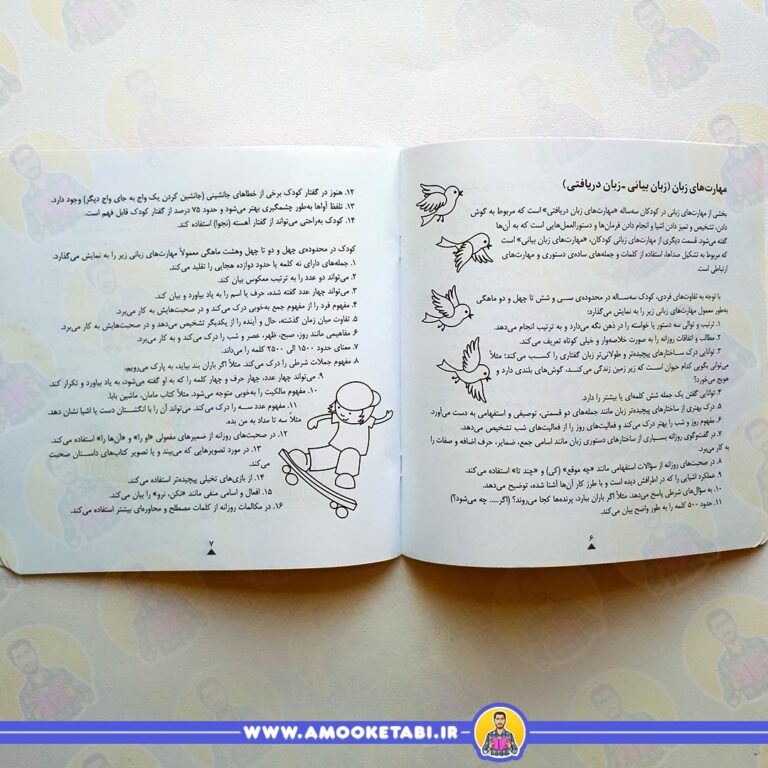 مهارت‌های زبان (زبان بیانی - زبان دریافتی)
بخشی از مهارت‌های زبانی در کودکان سه‌ساله «مهارت‌های زبان دریافتی» است که مربوط به گوش
دادن، تشخیص و تمیز دادن اشیا و انجام دادن فرمان‌ها و دستورالعمل‌هایی است که به آن‌ها
گفته می‌شود. قسمت دیگری از مهارت‌های زبانی کودکان، «مهارت‌های زبان بیانی» است
که مربوط به تشکیل صداها، استفاده از کلمات و جمله‌های ساده‌ی دستوری و مهارت‌های
ارتباطی است.
با توجه به تفاوت‌های فردی، کودک سه‌ساله در محدوده‌ی سی و شش تا چهل و دو ماهگی
به‌طور معمول مهارت‌های زبانی زیر را به نمایش می‌گذارد:
۱. ترتیب و توالی سه دستور یا خواسته را در ذهن نگه می‌دارد و به ترتیب انجام می‌دهد.
۲. مطالب و اتفاقات روزانه را به صورت خلاصه‌وار و خیلی کوتاه تعریف می‌کند.
۳. توانایی درک ساختارهای پیچیده‌تر و طولانی‌تر زبان گفتاری را کسب می‌کند؛ مثلاً
می‌توانی بگویی کدام حیوان است که زیر زمین زندگی می‌کند، گوش‌های بلندی دارد و
هویج می‌خورد؟
۴. توانایی گفتن یک جمله شش کلمه‌ای یا بیشتر را دارد.
۵. درک بهتری از ساختارهای پیچیده‌تر زبان مانند جمله‌های دو قسمتی، توصیفی و استفهامی به دست می‌آورد.
۶. مفهوم روز و شب را بهتر درک می‌کند و فعالیت‌های روز را از فعالیت‌های شب تشخیص می‌دهد.
۷. در گفت‌وگوی روزانه بسیاری از ساختارهای دستوری زبان مانند اسامی جمع، ضمایر، حرف اضافه و صفات را
به کار می‌برد.
۸. در صحبت‌های روزانه از سؤالات استفهامی مانند «چه موقع» (کی) و «چند تا» استفاده می‌کند.
۹. عملکرد اشیایی را که در اطرافش دیده است و با طرز کار آن‌ها آشنا شده، توضیح می‌دهد.
۱۰. به سؤال‌های شرطی پاسخ می‌دهد. مثلاً اگر باران ببارد، پرنده‌ها کجا می‌روند؟ (اگر..... چه می‌شود؟)
۱۱. حدود ۵۰۰ کلمه را به طور واضح بیان می‌کند.
۶
۱۲. هنوز در گفتار کودک برخی از خطاهای جانشینی (جانشین کردن یک واج به جای واج دیگر) وجود دارد.
۱۳. تلفظ آواها به‌طور چشمگیری بهتر می‌شود و حدود ۷۵ درصد از گفتار کودک قابل فهم است.
۱۴. کودک به‌راحتی می‌تواند از گفتار آهسته (نجوا) استفاده کند.
کودک در محدوده‌ی چهل و دو تا چهل وهشت ماهگی معمولاً مهارت‌های زبانی زیر را به نمایش می‌گذارد.
۱. جمله‌های دارای نه کلمه یا حدود دوازده هجایی را تقلید می‌کند.
۲. می‌تواند دو عدد را به ترتیب معکوس بیان کند.
۳. می‌تواند چهار عدد گفته شده، حرف یا اسم را به یاد بیاورد و بیان کند.
۴. مفهوم فرد را از مفهوم جمع به‌خوبی درک می‌کند و در صحبت‌هایش به کار می‌برد.
۵. تفاوت میان زمان گذشته، حال و آینده را از یکدیگر تشخیص می‌دهد و در صحبت‌هایش به کار می‌برد.
۶. مفاهیمی مانند روز، صبح، ظهر، عصر و شب را درک می‌کند و به کار می‌برد.
۷. معنای حدود ۱۵۰۰ الی ۲۵۰۰ کلمه را می‌داند.
۸. مفهوم جملات شرطی را درک می‌کند. مثلاً اگر باران بند بیاید، به پارک می‌رویم.
۹. می‌تواند چهار عدد، چهار حرف و چهار کلمه را که به او گفته می‌شود، به یاد بیاورد و تکرار کند.
۱۰. مفهوم مالکیت را به‌خوبی متوجه می‌شود. مثلاً کتاب مامان، ماشین بابا.
۱۱. مفهوم عدد سه را درک می‌کند. می‌تواند آن را با انگشتان دست یا اشیا نشان دهد.
مثلاً سه تا مداد به من بده.
۱۲. در صحبت‌های روزانه از ضمیرهای مفعولی «او را» و «آن‌ها را» استفاده می‌کند.
۱۳. در مورد تصویرهایی که می‌بیند و یا تصویر کتاب‌های داستان صحبت
می‌کند.
۱۴. از بازی‌های تخیلی پیچیده‌تر استفاده می‌کند.
۱۵. افعال و اسامی منفی مانند «نکن، نرو» را بیان می‌کند.
۱۶. در مکالمات روزانه از کلمات مصطلح و محاوره‌ای بیشتر استفاده می‌کند.
۷
WWW.AMOOKETABI.IR